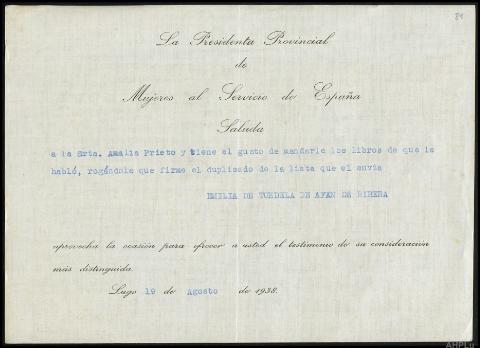 81
La Presidenta Provincial
de
Mujeres al Servicio de España
Saluda
a la Srta. Amalia Prieto y tiene el gusto de mandarle los libros de que le
habló, rogándole que firme el duplicado de la lista que el envia
EMILIA DE TUNDELA DE AFAN DE RIBERA
aprovecha la ocasión para ofrecer a usted el testimonio de su consideración
más distinguida.
Lugo 19 de Agosto de 1938.
AHPLu